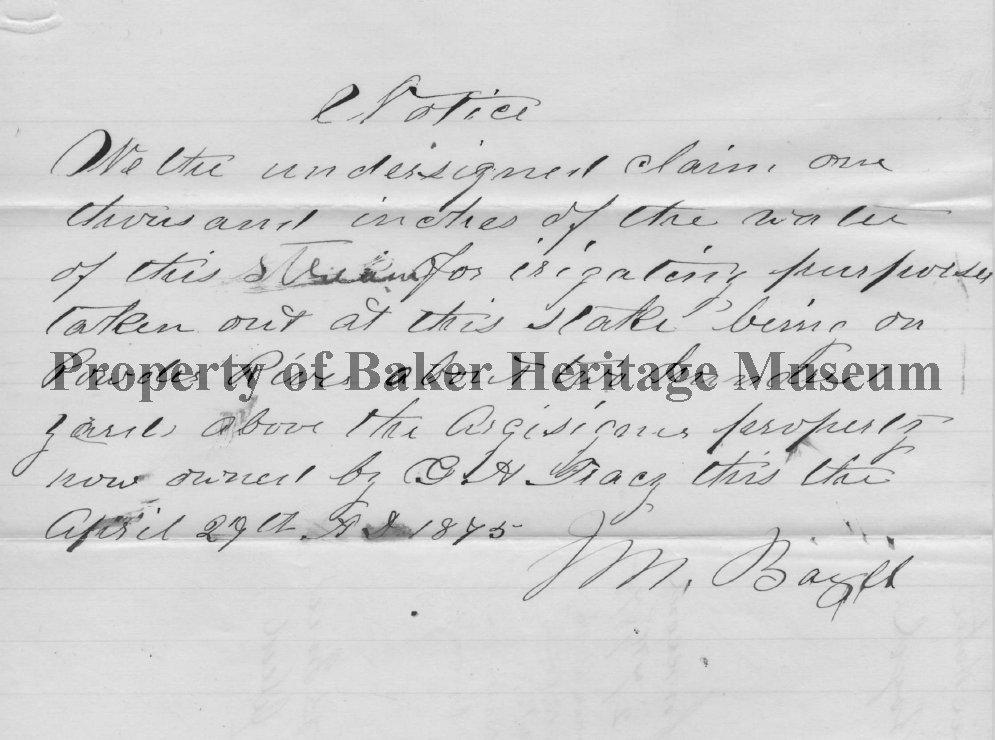 Notice
We the undersigned claim one
thousand inches of the water
of this stream for irigating purposes
taken out at this stake being on
Property of Baker Heritage Museum
Powder River about two hundred
yards above the property
now owned by G H Tracy this the
April 29th A D 1875
J M.